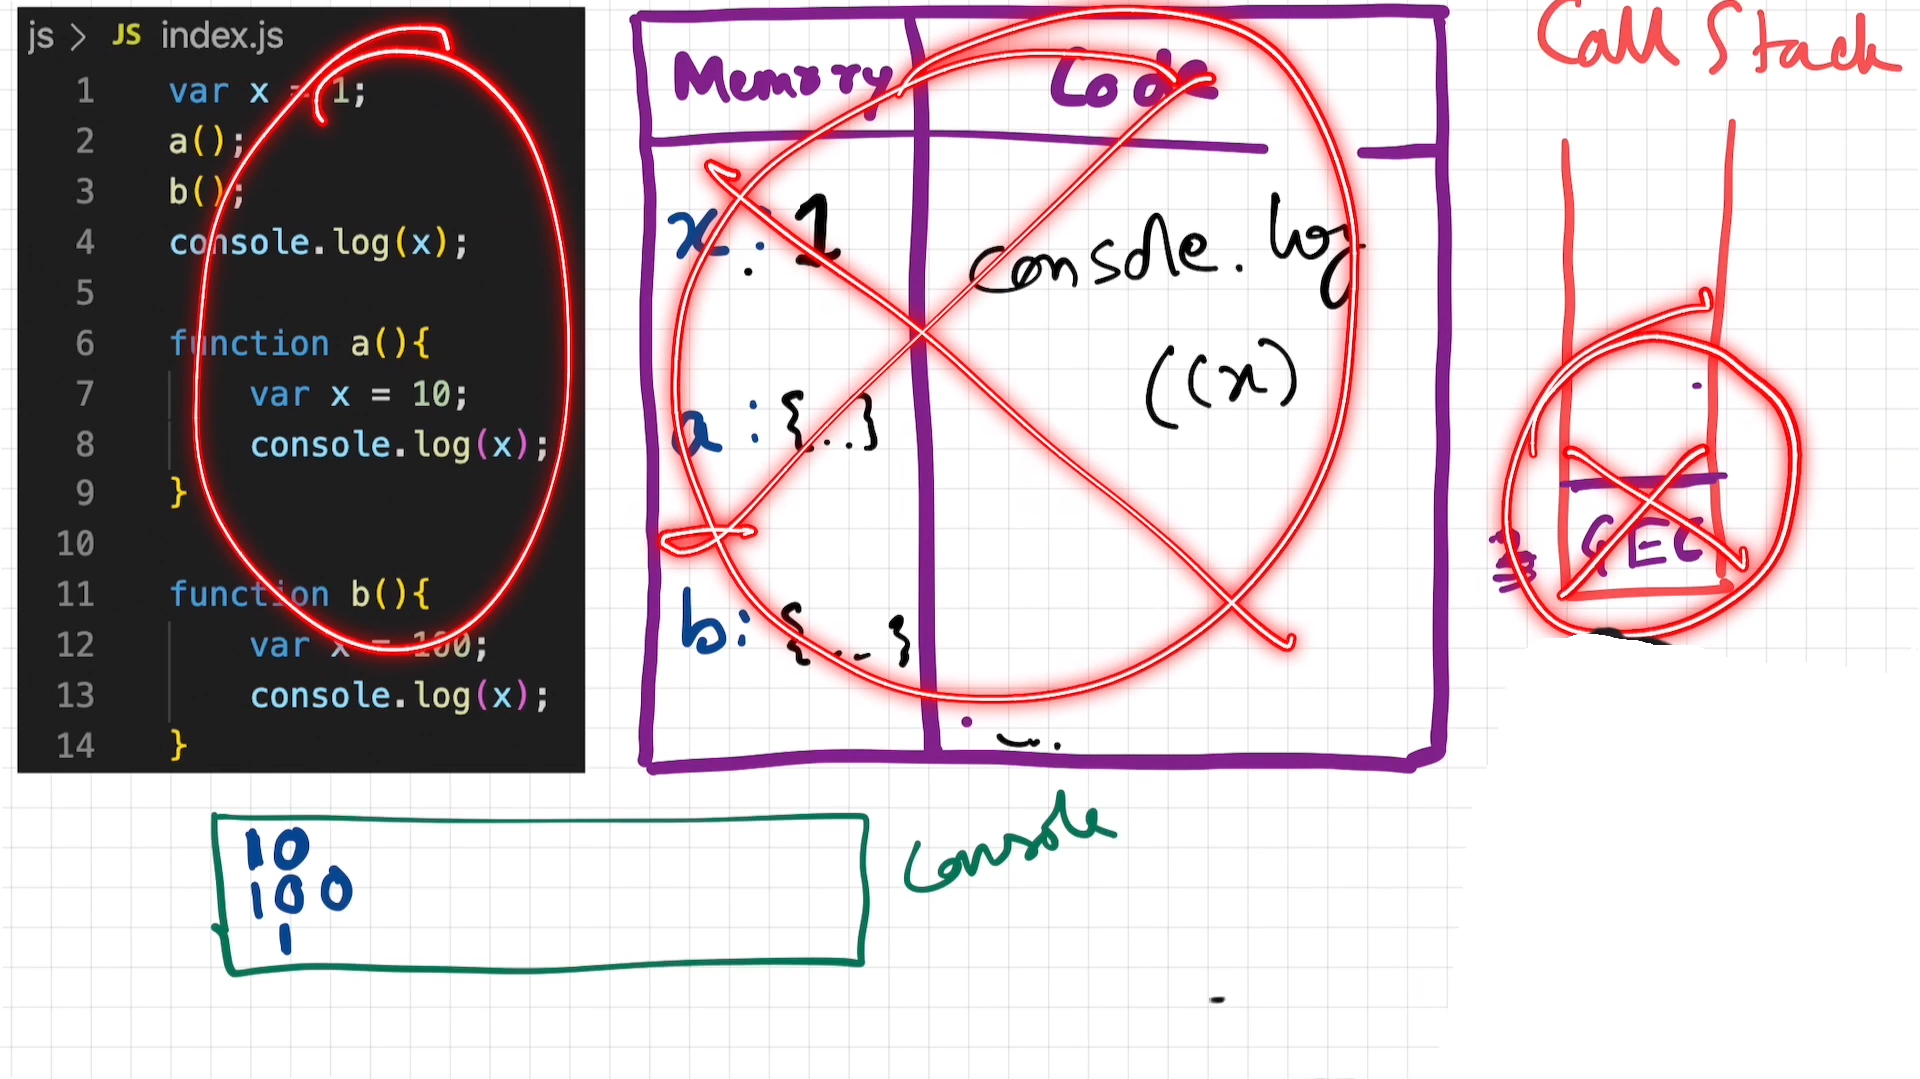 js > JS index.js
1 var x = 1;
2 a();
3 b();
4 console.log(x);
5
6 function a(){
7 var x = 10;
8 console.log(x);
9 }
10
11 function b(){
12 var x = 100;
13 console.log(x);
14 }
Memory Code
x : 1
console.log
((x)
a : {..}
b : {..}
Call Stack
GEC
10
100
1
Console